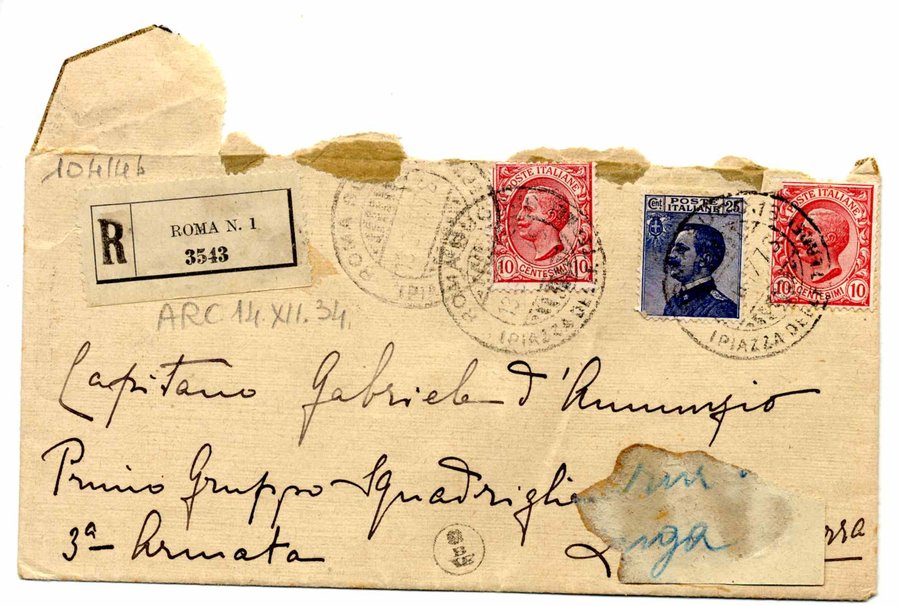 104/46
R
ROMA N. 1
3543
ARC 14.XII.34.
POSTE ITALIANE
10 CENTESIMI 10
Cent. 25
POSTE ITALIANE
POSTE ITALIANE
10 CENTESIMI 10
ROMA
(PIAZZA DEL
(PIAZZA DEL
Capitano Gabriele d'Annunzio
Primo Gruppo Squadriglie
3ª Armata